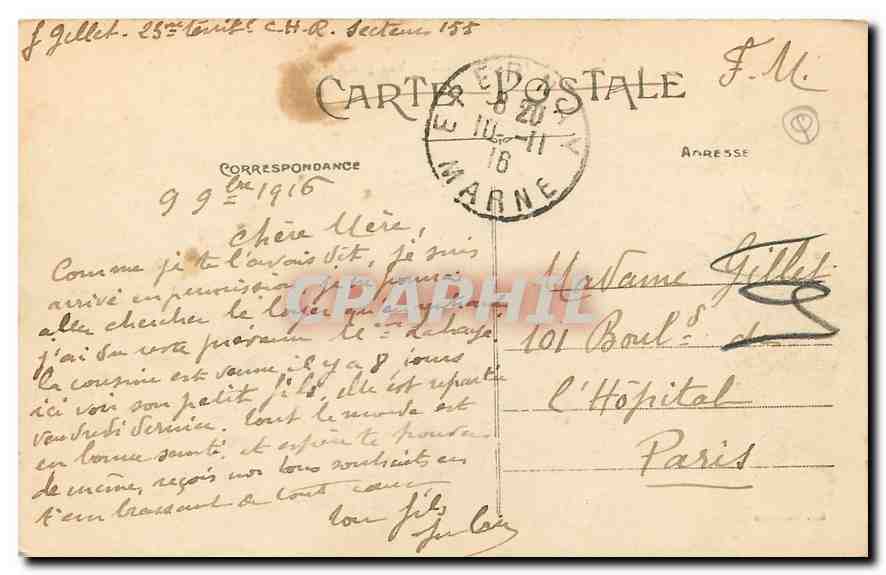 J Gillet. 25me territ. C.H.R. Secteur 155
F.M.
CARTE POSTALE
EPERNAY
8 20
10-11
16
MARNE
CORRESPONDANCE
ADRESSE
9 9bre 1916
Chère Mère,
Comme je te l'avais dit, je suis
arrivé en permission, je
aller chercher le loyer
j'ai du reste prévenu
la cousine est venue il y a 8 jours
ici voir son petit fils, elle est repartie
vendredi dernier. Tout le monde est
en bonne santé et espère te trouver
de même, reçois nos bons souhaits en
t'embrassant de tout cœur
Ton fils
Madame Gillet
101 Boul.d de
l'Hôpital
Paris
CPAPHIL